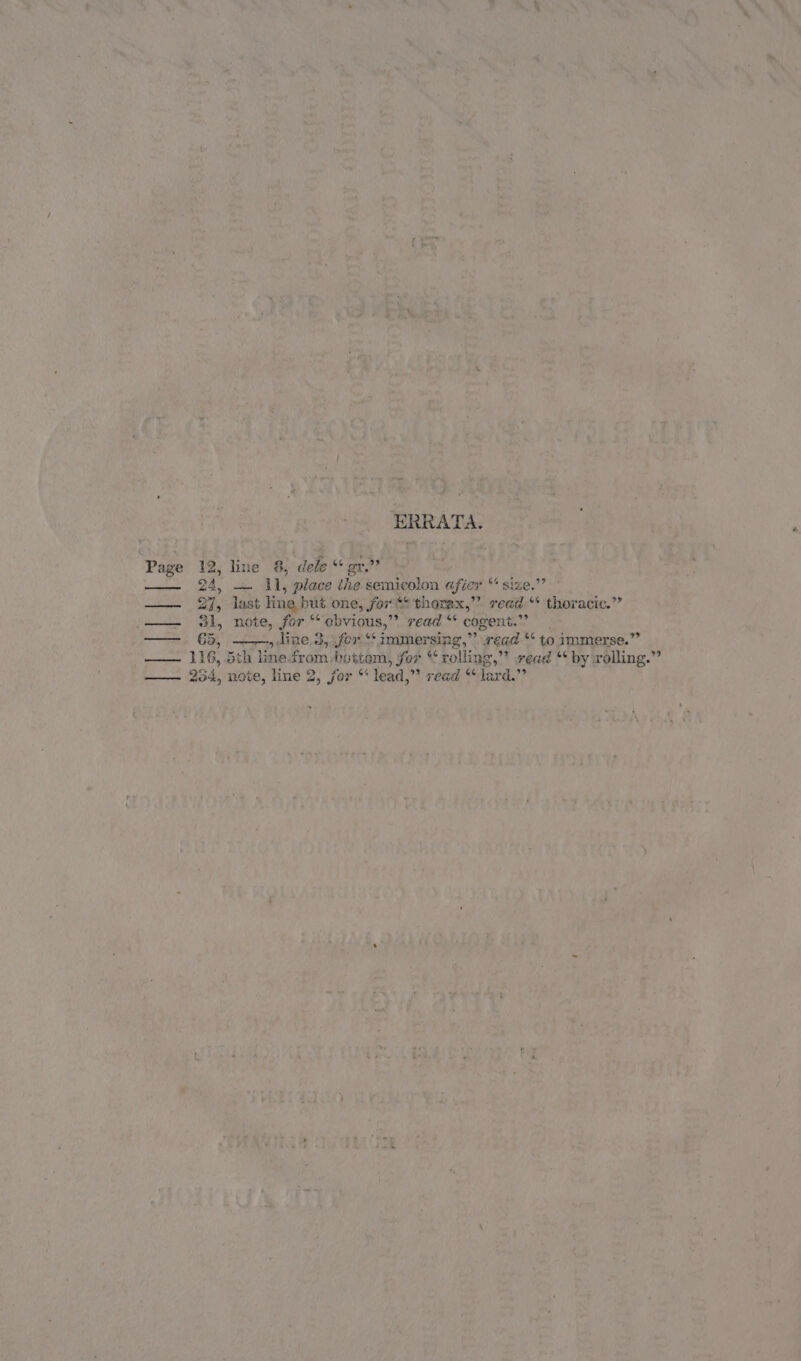 ERRATA.
Page 12, line 8, dele “gr.”
—— 24, — 11, place the semicolon after “size.”
—— 27, last line but one, for “thorax,” read “thoracic.”
—— 31, note, for “obvious,” read “cogent.”
—— 65, ——, line 3, for “immersing,” read “to immerse.”
—— 116, 5th line from bottom, for “rolling,” read “by rolling.”
—— 254, note, line 2, for “lead,” read “lard.”